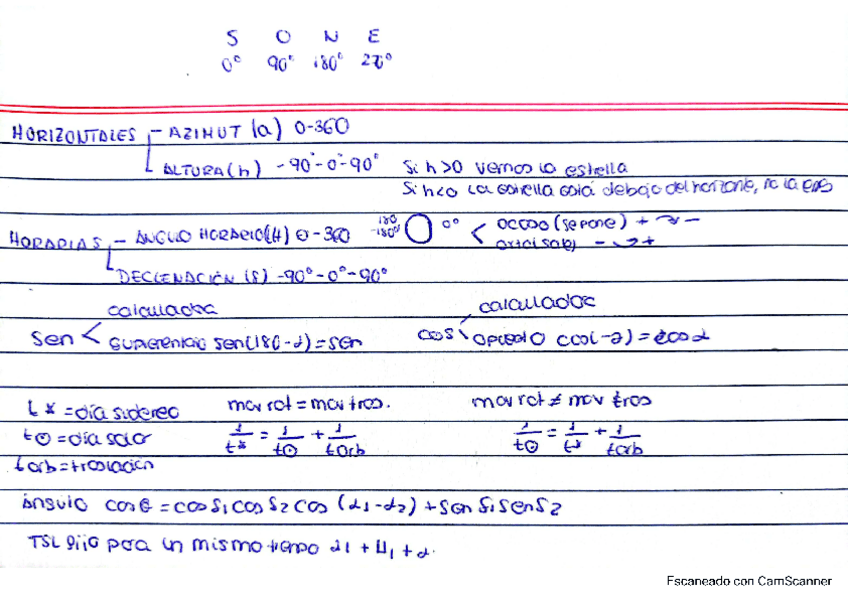 S O N E
0° 90° 180° 270°
HORIZONTALES - AZIMUT (a) 0-360
ALTURA (h) -90°-0°-90° Si h>0 vemos la estrella
Si h<0 la estrella está debajo del horizonte, no la
HORARIAS - ÁNGULO HORARIO (H) 0-360 180 -180° 0° < ocaso (se pone) + -
orto (sale) - +
DECLINACIÓN (δ) -90°-0°-90°
calculadora calculadora
sen < suplementario sen(180-α)=sen cos < opuesto cos(-α)=cosα
t* = día sidereo mov rot = mov tras. mov rot ≠ mov tras
t⊙ = día solar 1/t* = 1/t⊙ + 1/torb 1/t⊙ = 1/t* + 1/torb
torb = traslación
ángulo cosθ = cosδ1 cosδ2 cos (α1-α2) + senδ1 senδ2
TSL fijo para un mismo tiempo α1 + H1 + α.
Escaneado con CamScanner